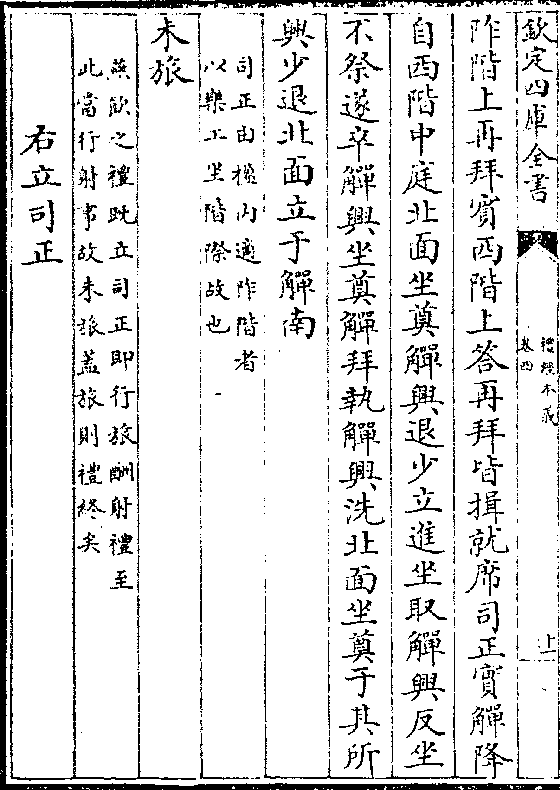 欽定四庫全書
禮經本義
卷四
十一
阼階上再拜賓西階上答再拜皆揖就席司正實觶降
自西階中庭北面坐奠觶興退少立進坐取觶興反坐
不祭遂卒觶興坐奠觶拜執觶興洗北面坐奠于其所
興少退北面立于觶南
司正由楹内適阼階者
以樂工坐階際故也
未旅
燕飲之禮既立司正即行旅酬射禮至
此當行射事故未旅蓋旅則禮終矣
右立司正